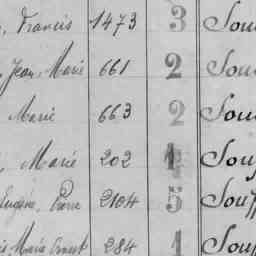 , Francis 1473 3 Sou
, Jean, Marie 661 2 Sou
Marie 663 2 Sou
, Marie 202 1 Souf
Eugène, Pierre 2104 5 Souff
Marie Ernest 284 1 Souf